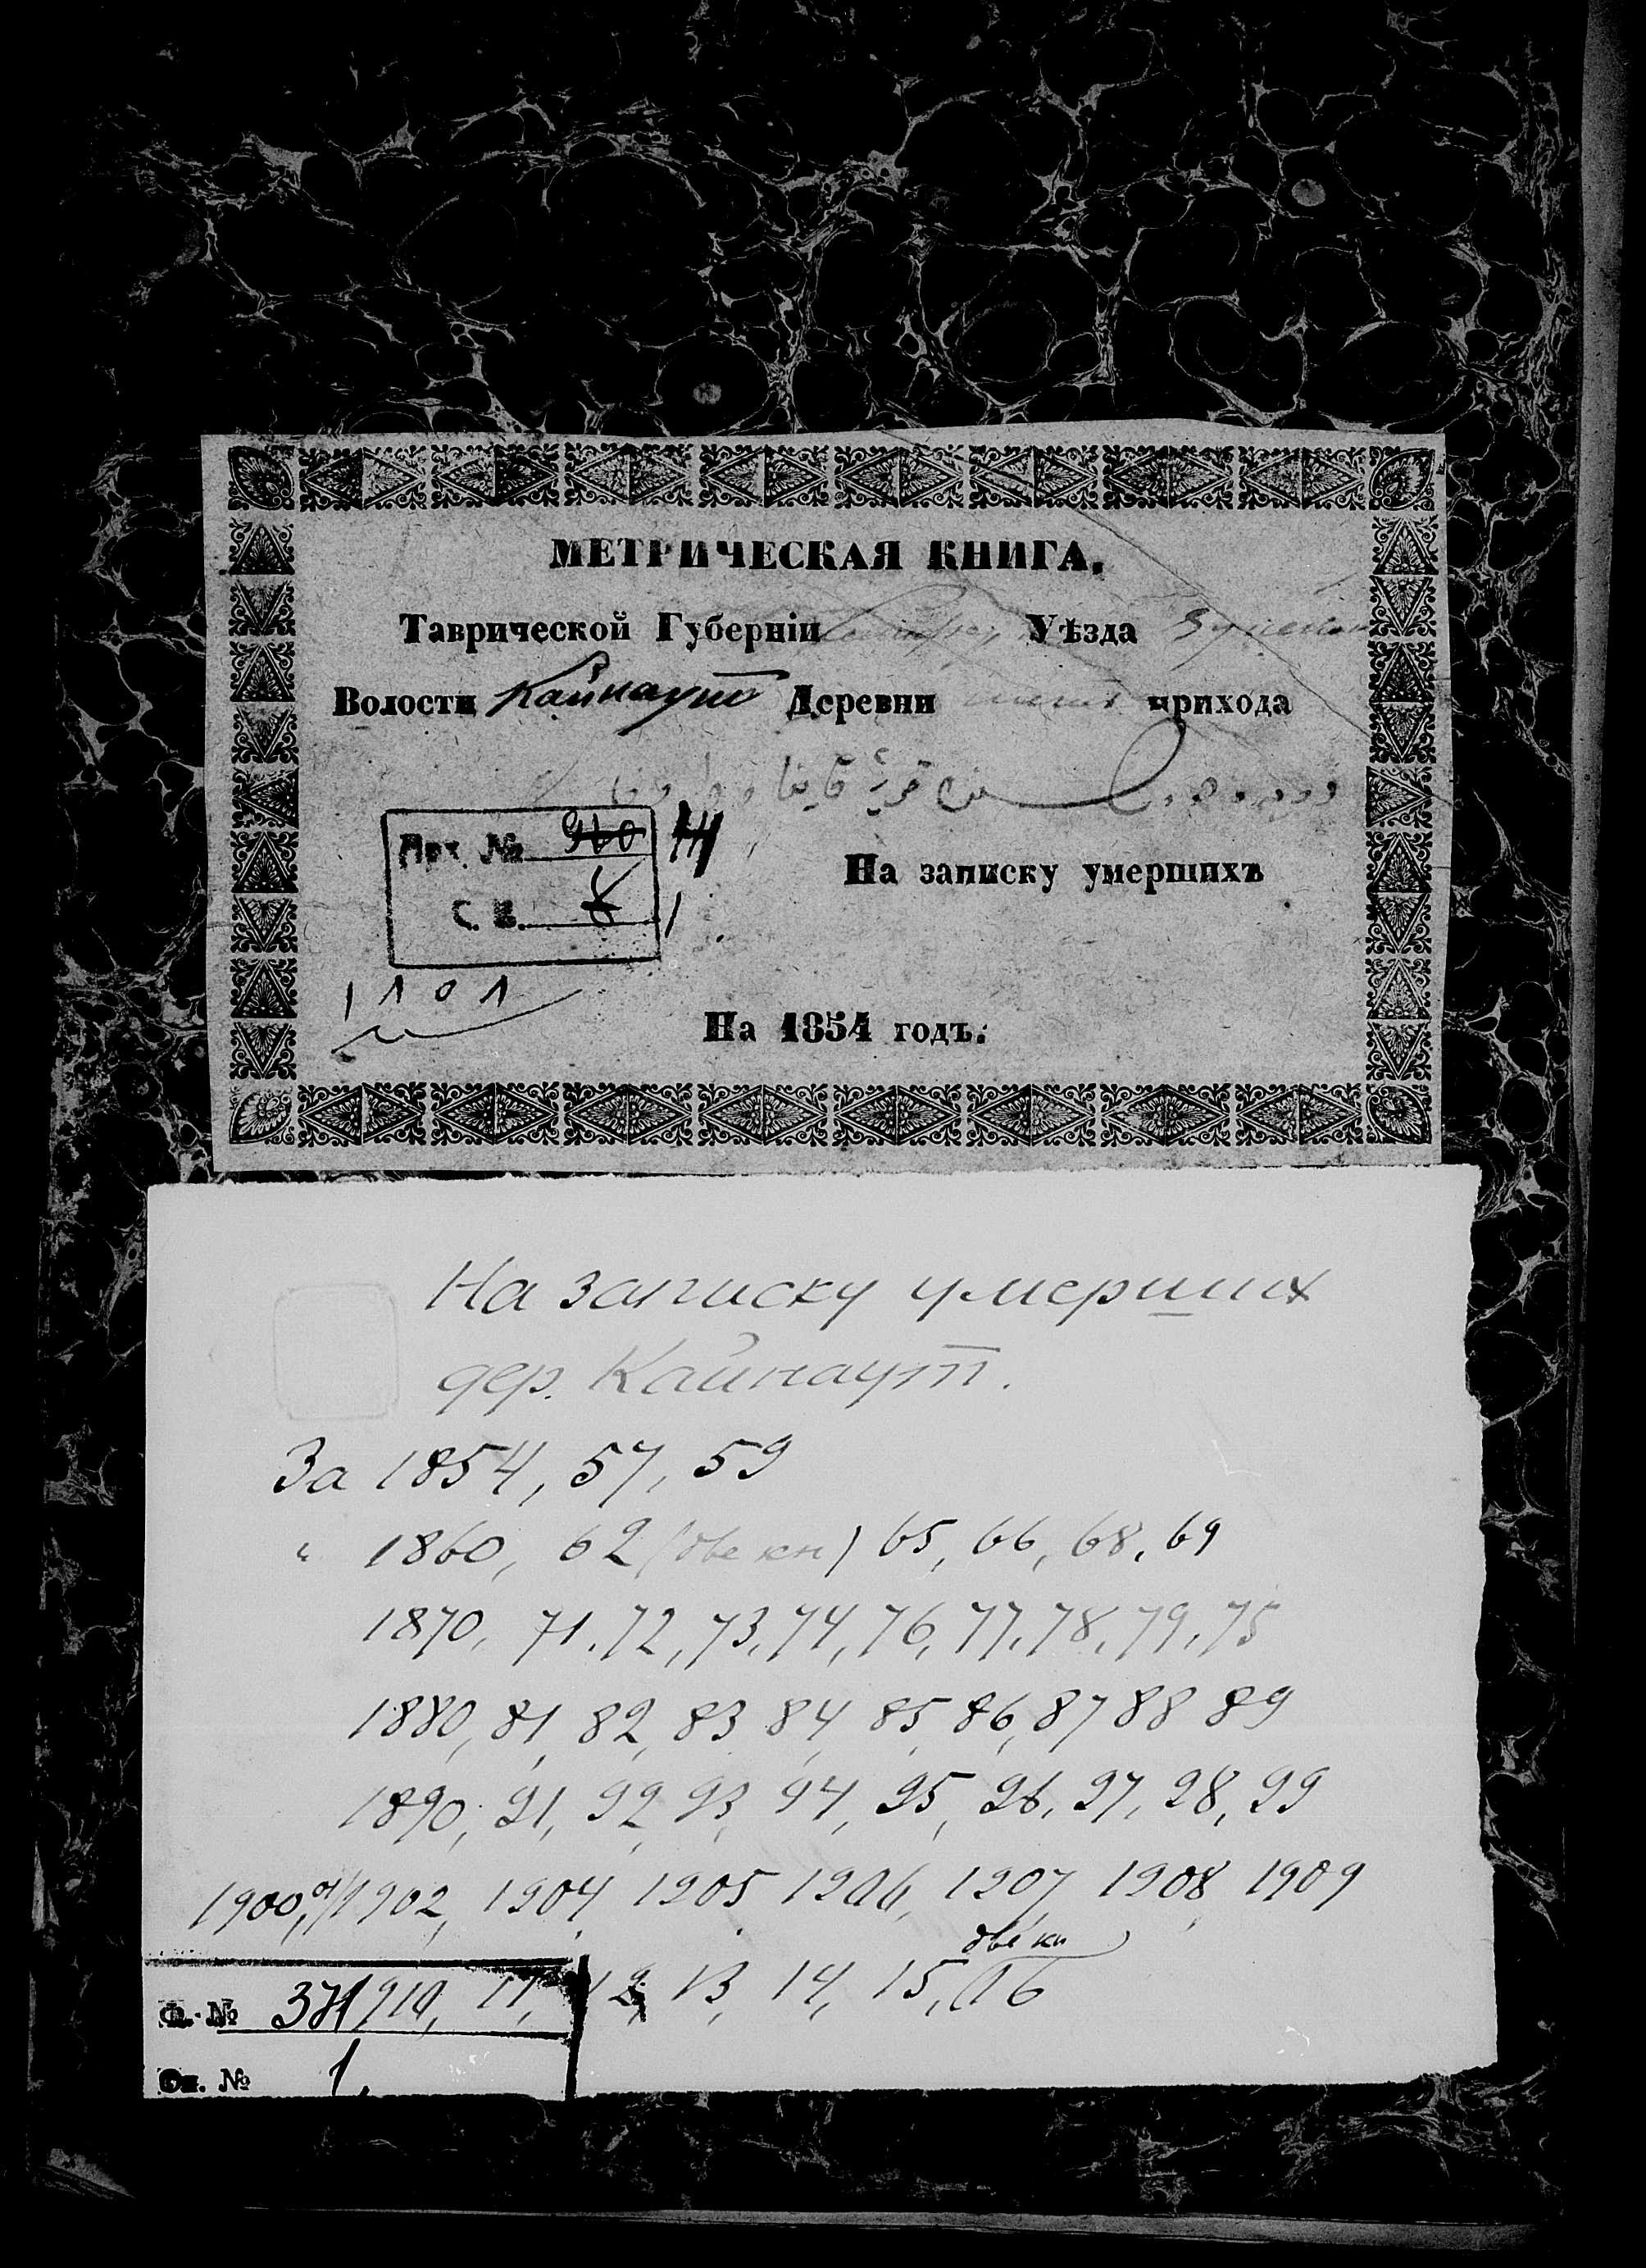 МЕТРИЧЕСКАЯ КНИГА.
Таврической Губерніи Уѣзда
Волости Кайнаут Деревни прихода
قرية
Арх. № 920
На записку умершихъ
С. В. 1
1101
На 1854 годъ.
На записку умерших
дер. Кайнаут.
За 1854, 57, 59
" 1860, 62 (две кн) 65, 66, 68, 69
1870, 71, 72, 73, 74, 76, 77, 78, 79, 75
1880, 81, 82, 83 84, 85, 86, 87 88 89
1890, 91, 92, 93, 94, 95, 96, 97, 98, 99
1900, 01, 1902, 1904 1905 1906, 1907, 1908, 1909
две кн
1910, 11, 12, 13, 14, 15, 16
Ф. № 371
Оп. № 1.